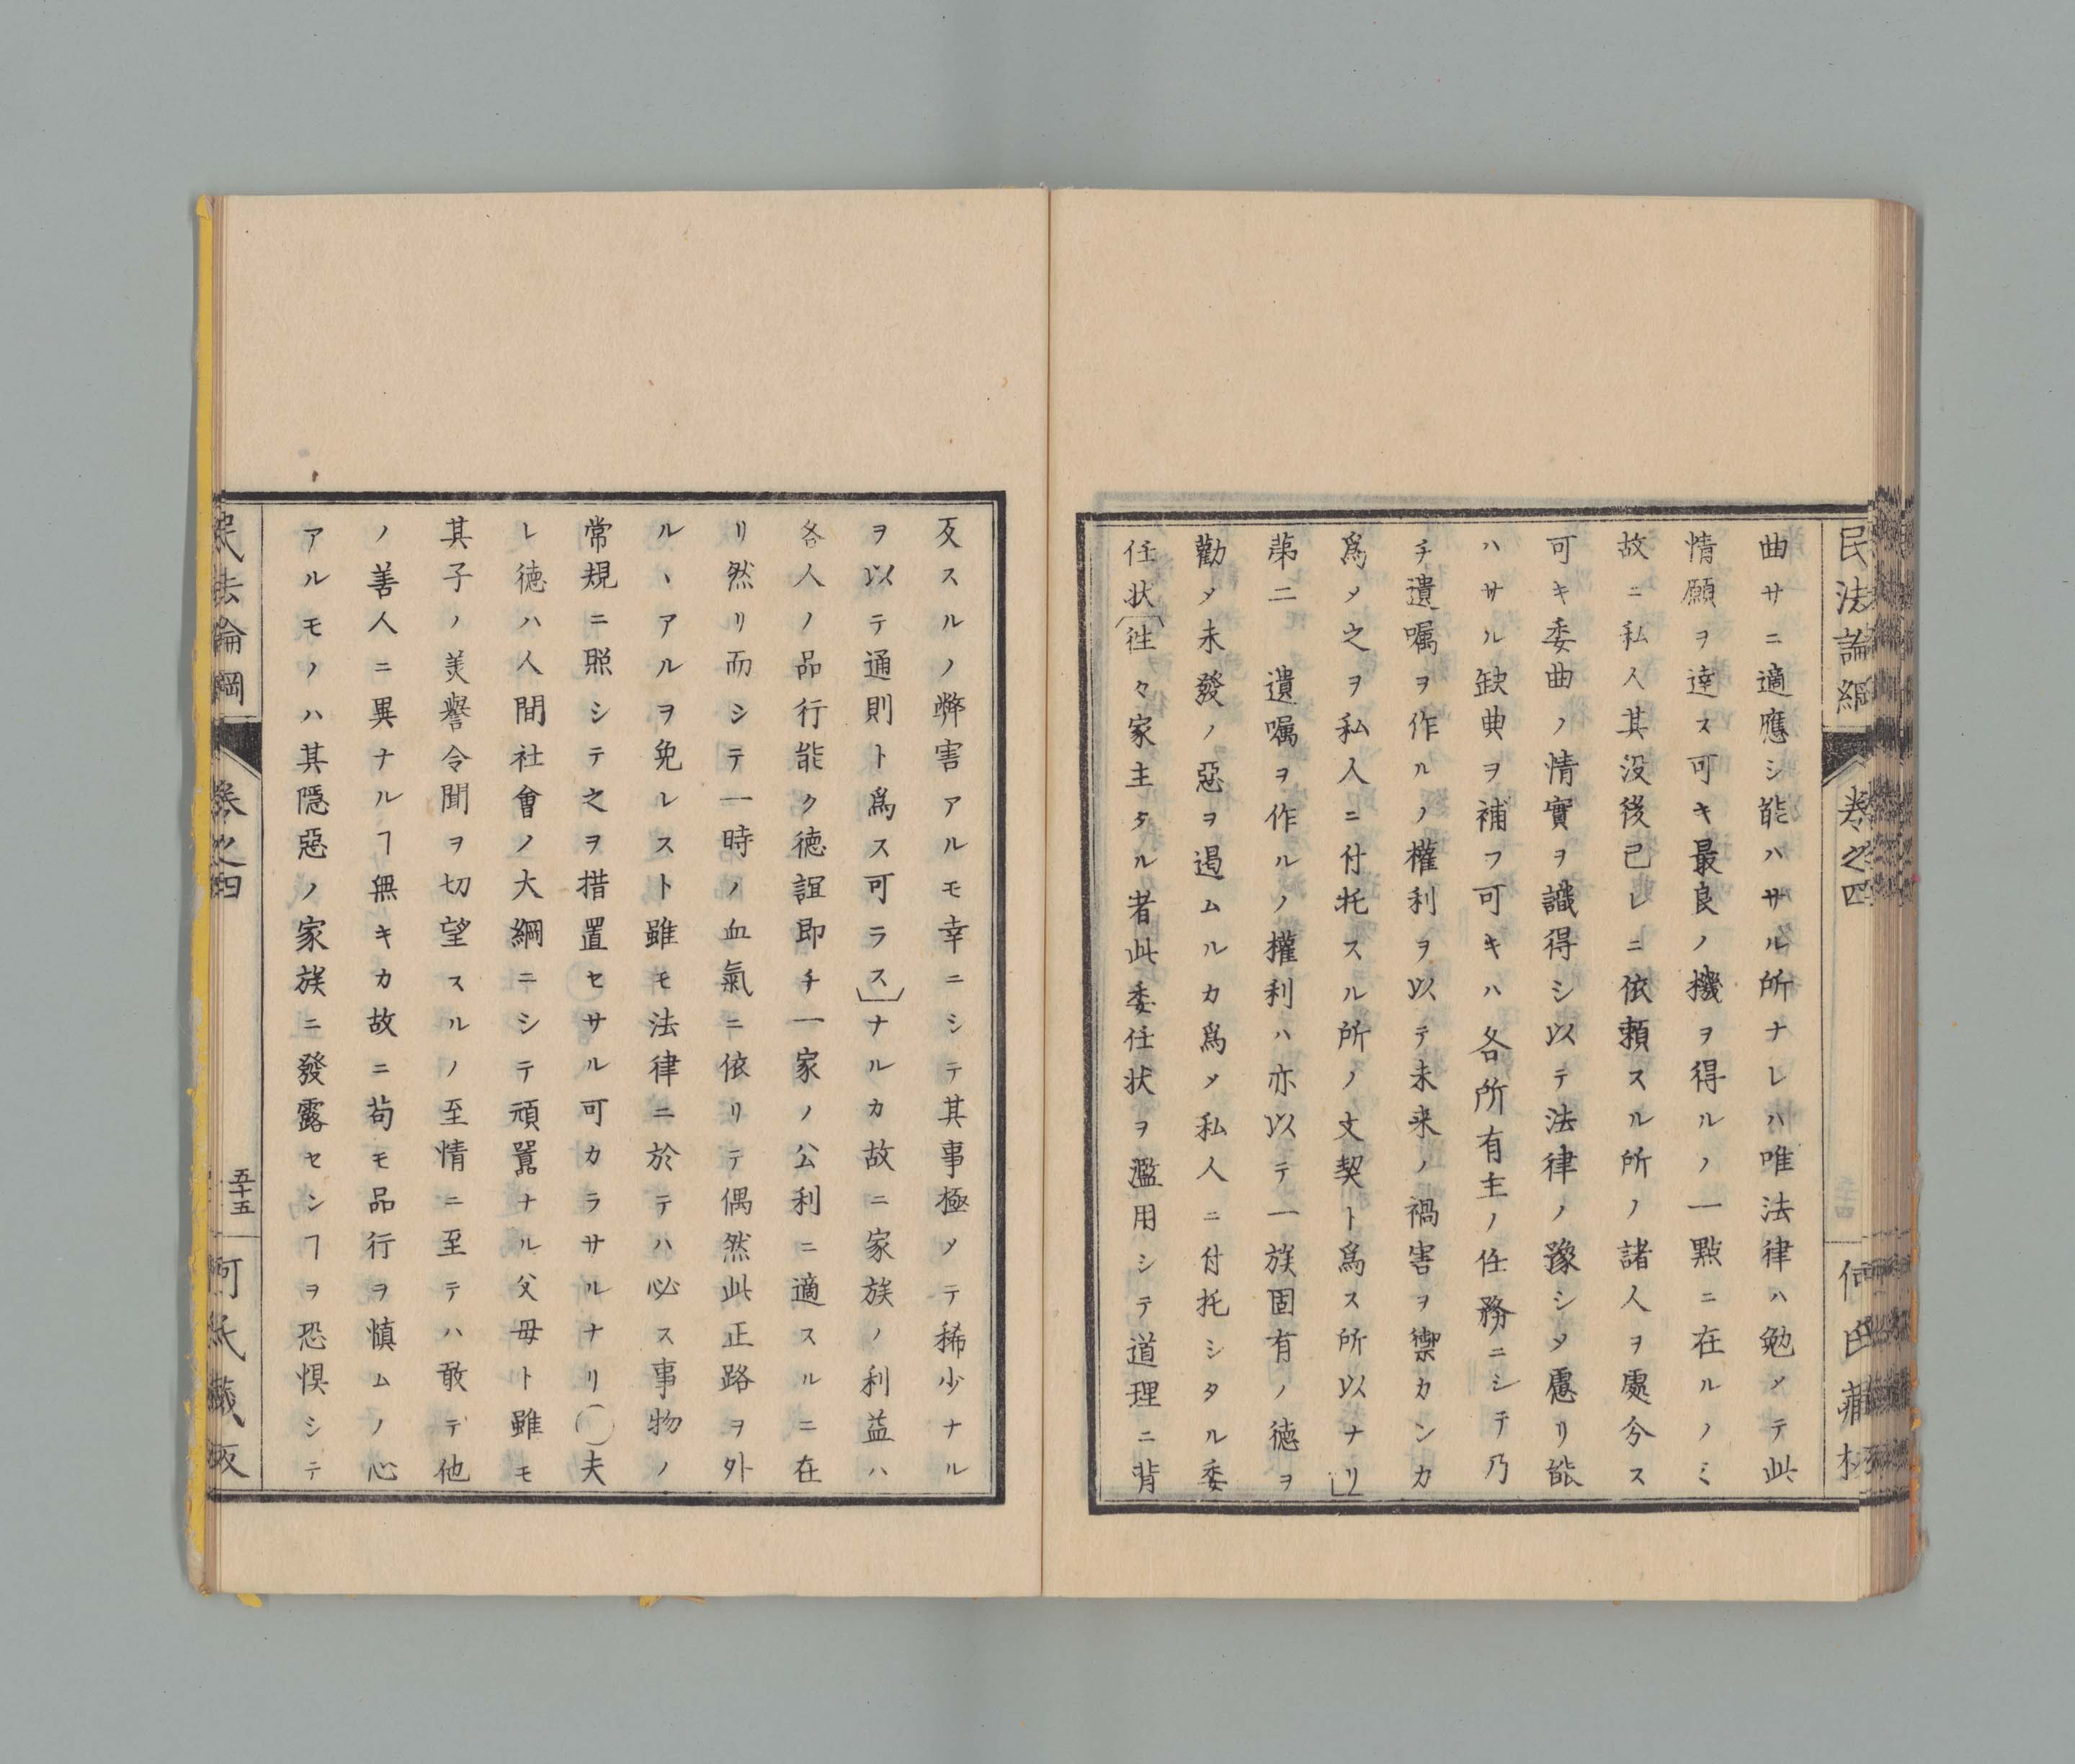 民法論綱
卷之四
曲サニ適應シ能ハサル所ナレハ唯法律ハ勉メテ此
情願ヲ達ス可キ最良ノ機ヲ得ルノ一點ニ在ルノミ
故ニ私人其没後己レニ依頼スル所ノ諸人ヲ處分ス
可キ委曲ノ情實ヲ識得シ以テ法律ノ豫シメ慮リ能
ハサル缺典ヲ補フ可キハ各所有主ノ任務ニシテ乃
チ遺嘱ヲ作ルノ權利ヲ以テ未来ノ禍害ヲ禦カンカ
爲メ之ヲ私人ニ付托スル所ノ文契ト爲ス所以ナリ」
苐二　遺嘱ヲ作ルノ權利ハ亦以テ一族固有ノ徳ヲ
勸メ未發ノ惡ヲ遏ムルカ爲メ私人ニ付托シタル委
任状〔徃々家主タル者此委任状ヲ濫用シテ道理ニ背
反スルノ弊害アルモ幸ニシテ其事極メテ稀少ナル
ヲ以テ通則ト爲ス可ラス〕ナルカ故ニ家族ノ利益ハ
各人ノ品行能ク徳誼即チ一家ノ公利ニ適スルニ在
リ然リ而シテ一時ノ血氣ニ依リテ偶然此正路ヲ外
ル丶アルヲ免レスト雖モ法律ニ於テハ必ス事物ノ
常規ニ照シテ之ヲ措置セサル可カラサルナリ○夫
レ徳ハ人間社會ノ大綱ニシテ頑嚚ナル父母ト雖モ
其子ノ美譽令聞ヲ切望スルノ至情ニ至テハ敢テ他
ノ善人ニ異ナルヿ無キカ故ニ苟モ品行ヲ慎ムノ心
アルモノハ其隠惡ノ家族ニ發露センヿヲ恐惧シテ
民法論綱
卷之四
五十五
何氏藏版